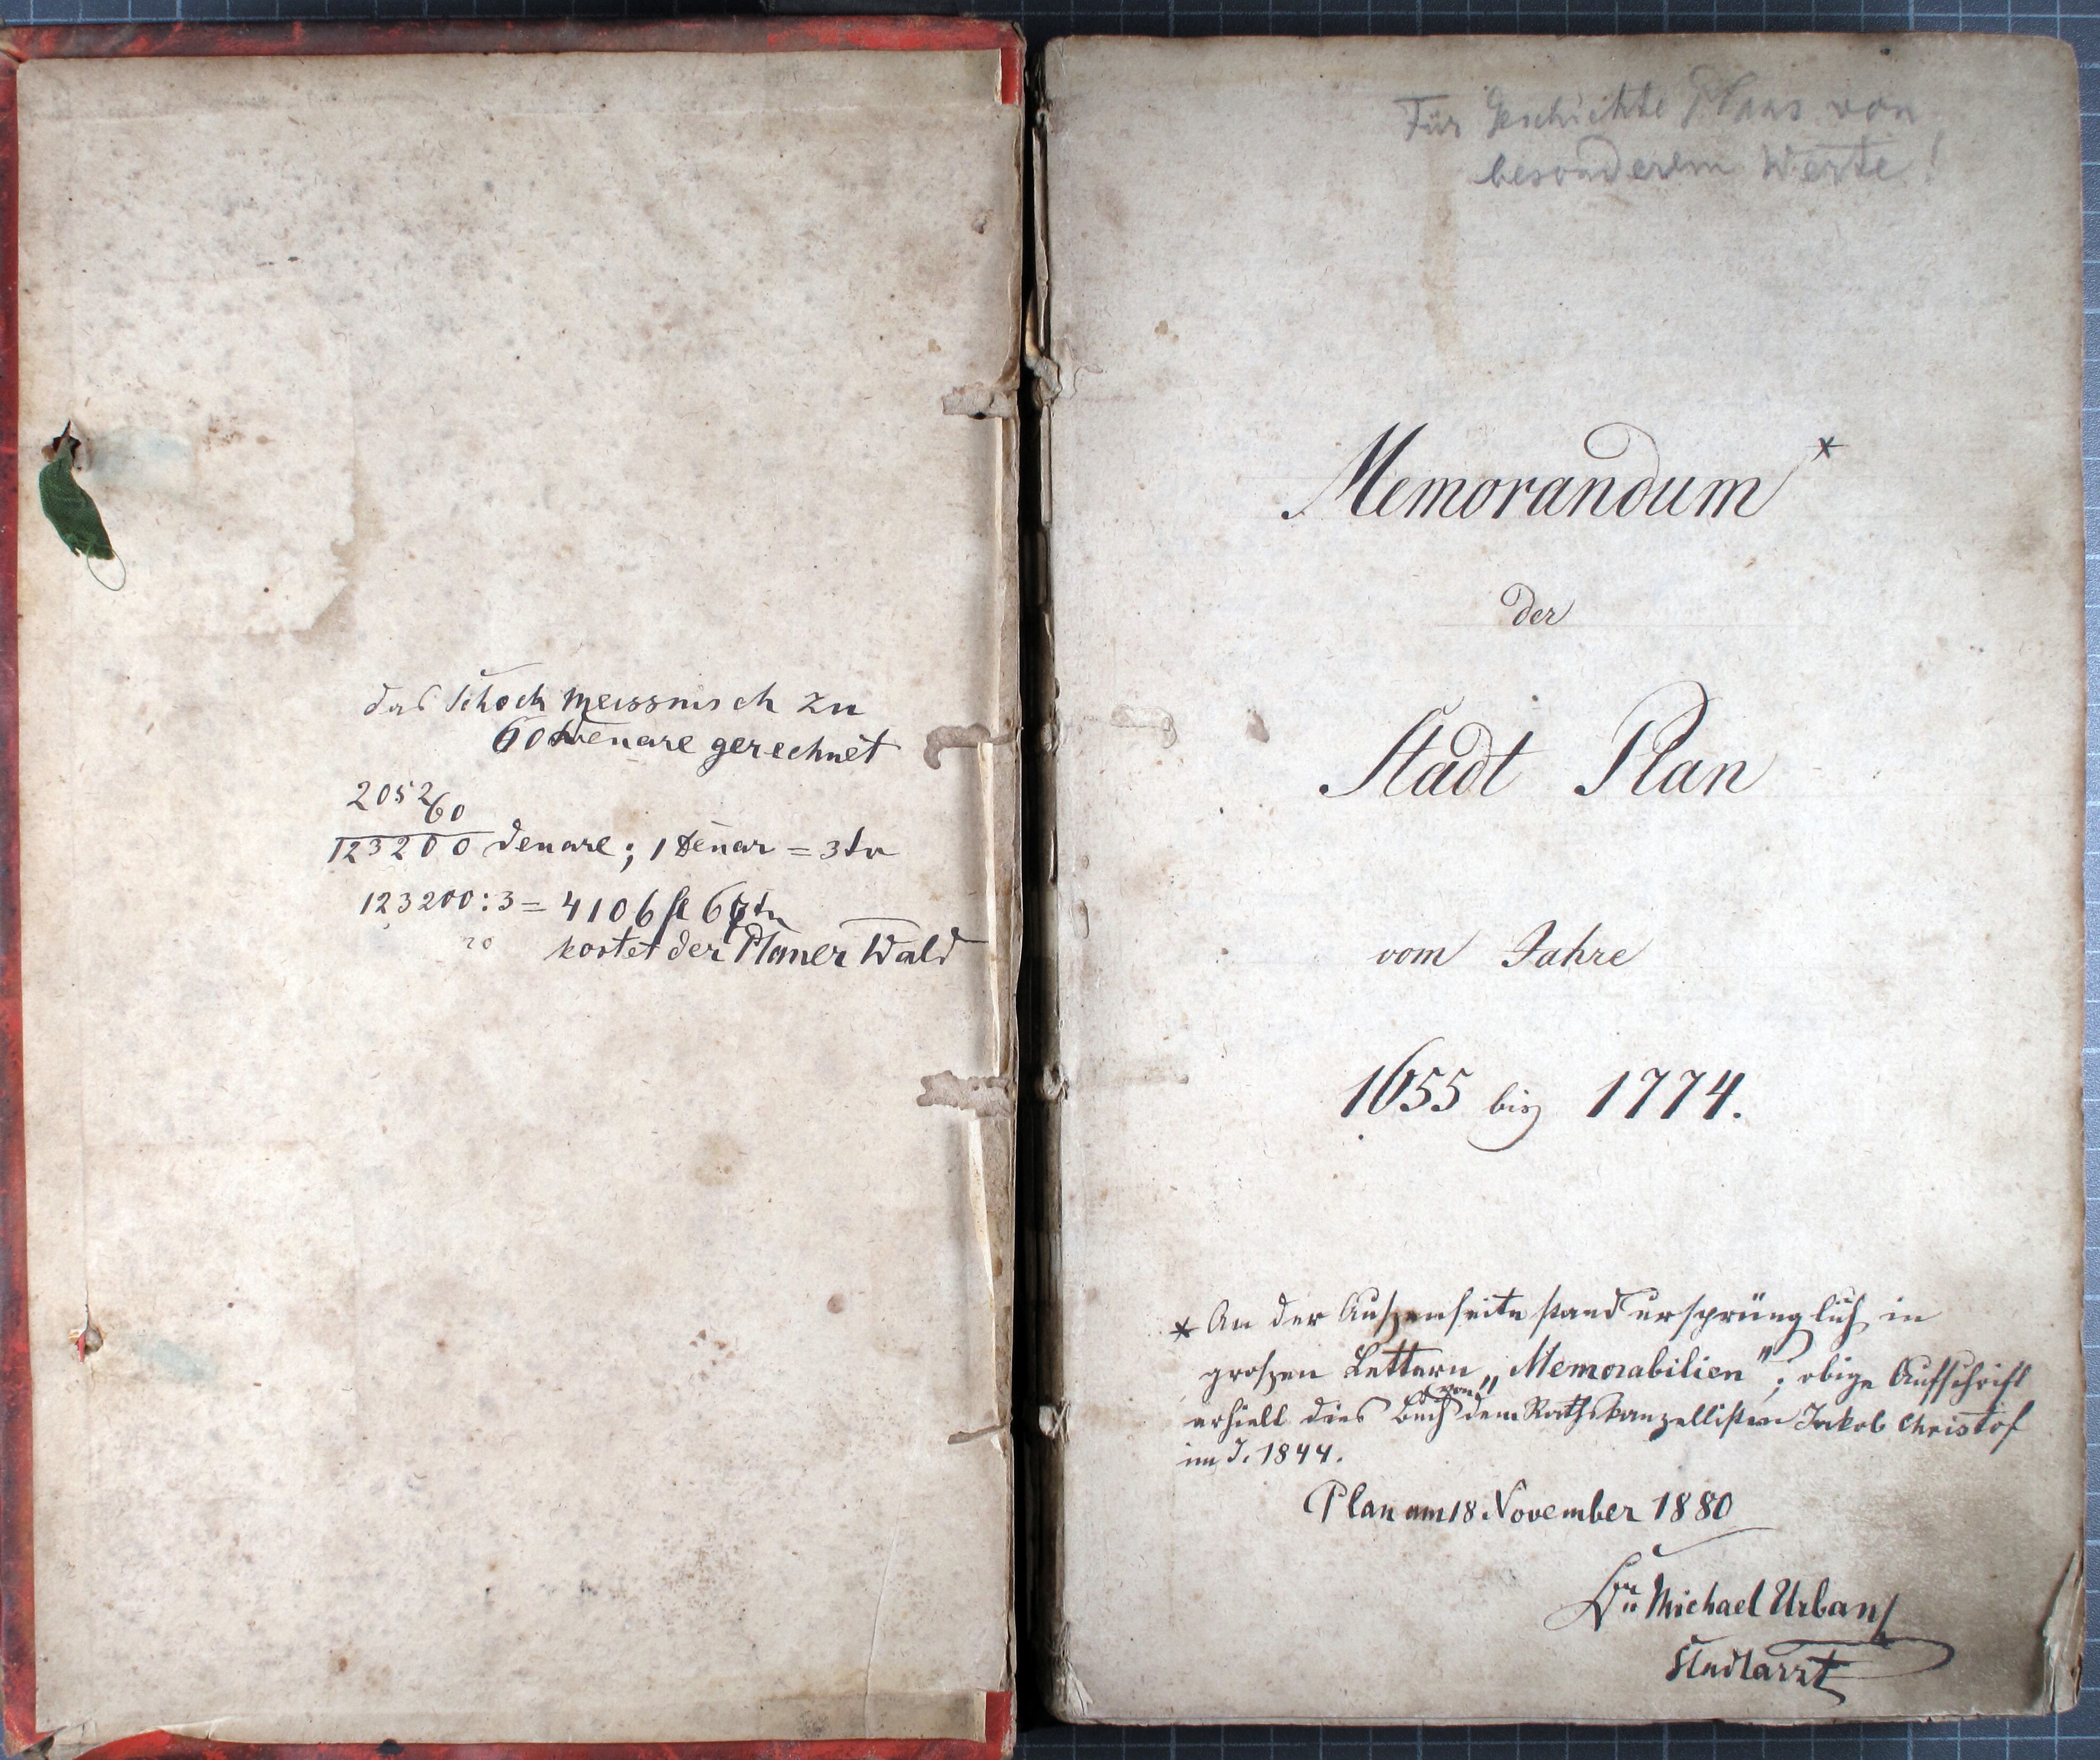 das Schock meissnisch zu
60 Denare gerechnet
2052
60
123200 Denare; 1 Denar = 3 kr
123200:3 = 4106 fl 6 kr
20
kostet der Planer Wald
Für Geschichte Plans von
besonderem Werte!
Memorandum *
der
Stadt Plan
vom Jahre
1655 bis 1774.
* An der Außenseite stand ursprünglich in
großen Lettern „Memorabilien"; obige Aufschrift
erhielt dies Buch von dem Rathskanzellisten Jakob Christof
im J. 1844.
Plan am 18 November 1880
Dr Michael Urban
Stadtarzt